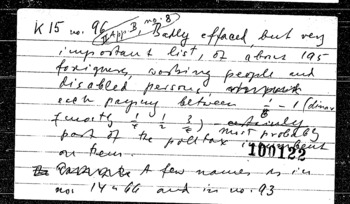 K 15 no. 96 (App. B, no. 8) Badly effaced, but very
important list, of about 195
foreigners, working people and
disabled persons,
each paying between 1/8 - 1 (dinar
(mostly 1/4 1/2 3/4)
part of the poll tax most probably
on them.
100122
A few names as in
nos 14 & 66 and in no. 93